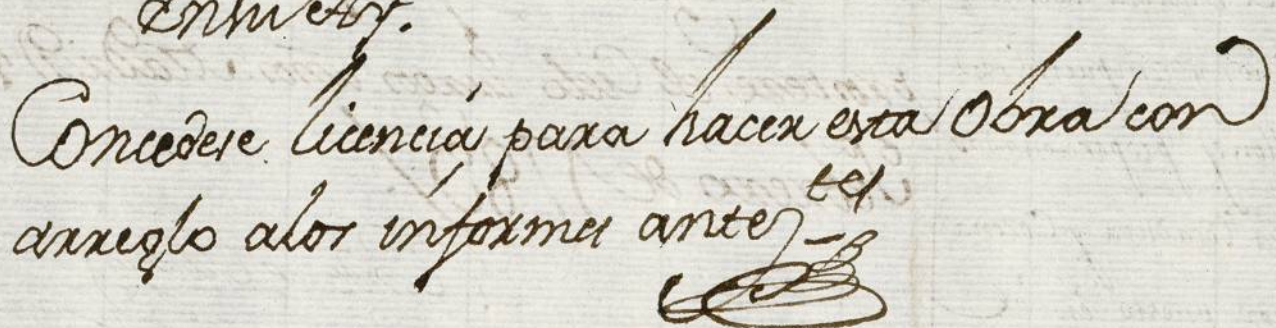 Concedese licencia para hacer esta Obra con
arreglo alos informes antez.tes